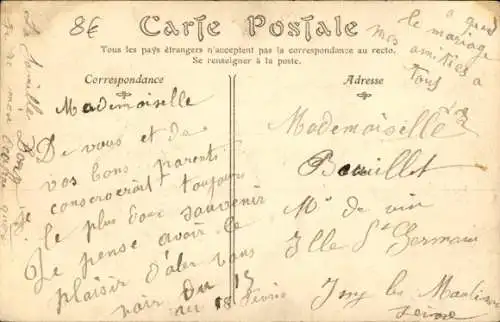 8€
Carte Postale
Tous les pays étrangers n'acceptent pas la correspondance au recto.
Se renseigner à la poste.
Correspondance
Mademoiselle
De vous et de
vos bons parents
conserverait toujours
le plus doux souvenir
Je pense avoir le
plaisir d'aler vous
voir du 15
au 18 Février
La famille
mon
a quand
le mariage
mes amitiés a
tous
Adresse
Mademoiselle
Bouillet
Md de vin
Ille St Germain
Issy les Moulin
Seine